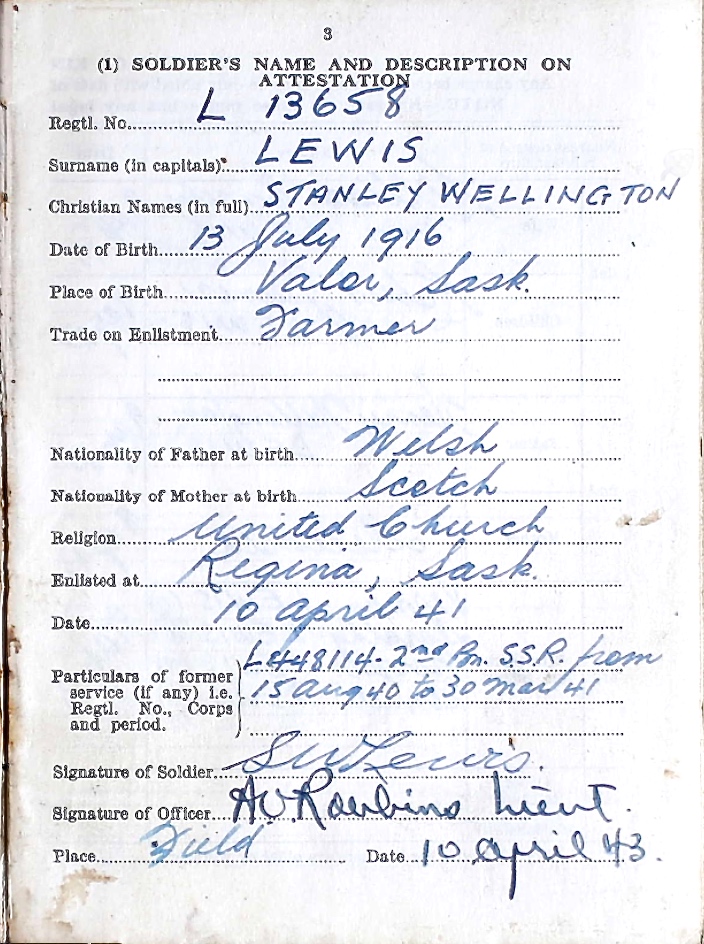 3
(1) SOLDIER'S NAME AND DESCRIPTION ON
ATTESTATION
Regtl. No. L 13658
Surname (in capitals). LEWIS
Christian Names (in full) STANLEY WELLINGTON
Date of Birth 13 July 1916
Place of Birth Valor, Sask.
Trade on Enlistment Farmer
Nationality of Father at birth Welsh
Nationality of Mother at birth Scotch
Religion United Church
Enlisted at Regina, Sask.
Date 10 april 41
Particulars of former service (if any) i.e. Regtl. No., Corps and period.
48114 - 2nd Bn. S.S.R. from
15 Aug 40 to 30 Mar 41
Signature of Soldier SW Lewis.
Signature of Officer Lieut.
Place Field Date 10 april 43.